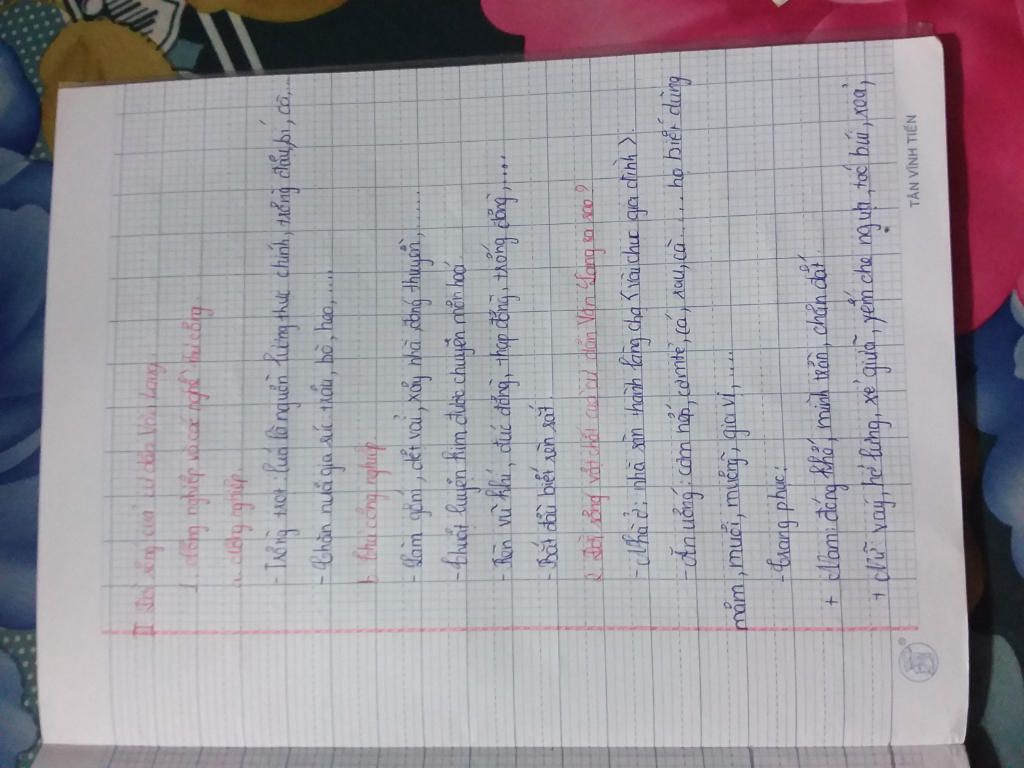 II Đời sống của cư dân Văn Lang.
1. Nông nghiệp và các nghề thủ công
a. Nông nghiệp.
- Trồng trọt: lúa là nguồn lương thực chính, trồng đậu, bí, cà,...
- Chăn nuôi gia súc trâu, bò, heo,....
b. Thủ công nghiệp
- Làm gốm, dệt vải, xây nhà, đóng thuyền,......
- Thuật luyện kim được chuyên môn hoá.
- Rèn vũ khí, đúc đồng, thạp đồng, trống đồng,....
- Bắt đầu biết rèn sắt.
2. Đời sống vật chất của cư dân Văn Lang ra sao?
- Nhà ở: nhà sàn thành làng chạ (vài chục gia đình).
- Ăn uống: cơm nếp, cơm tẻ, cá, rau, cà...... họ biết dùng
mâm, muối, muỗng, gia vị,....
- Trang phục:
+ Nam: đóng khố, mình trần, chân đất.
+ Nữ váy, hở lưng, xẻ giữa, yếm che ngực, tóc búi, xoả,
TÂN VĨNH TIẾN